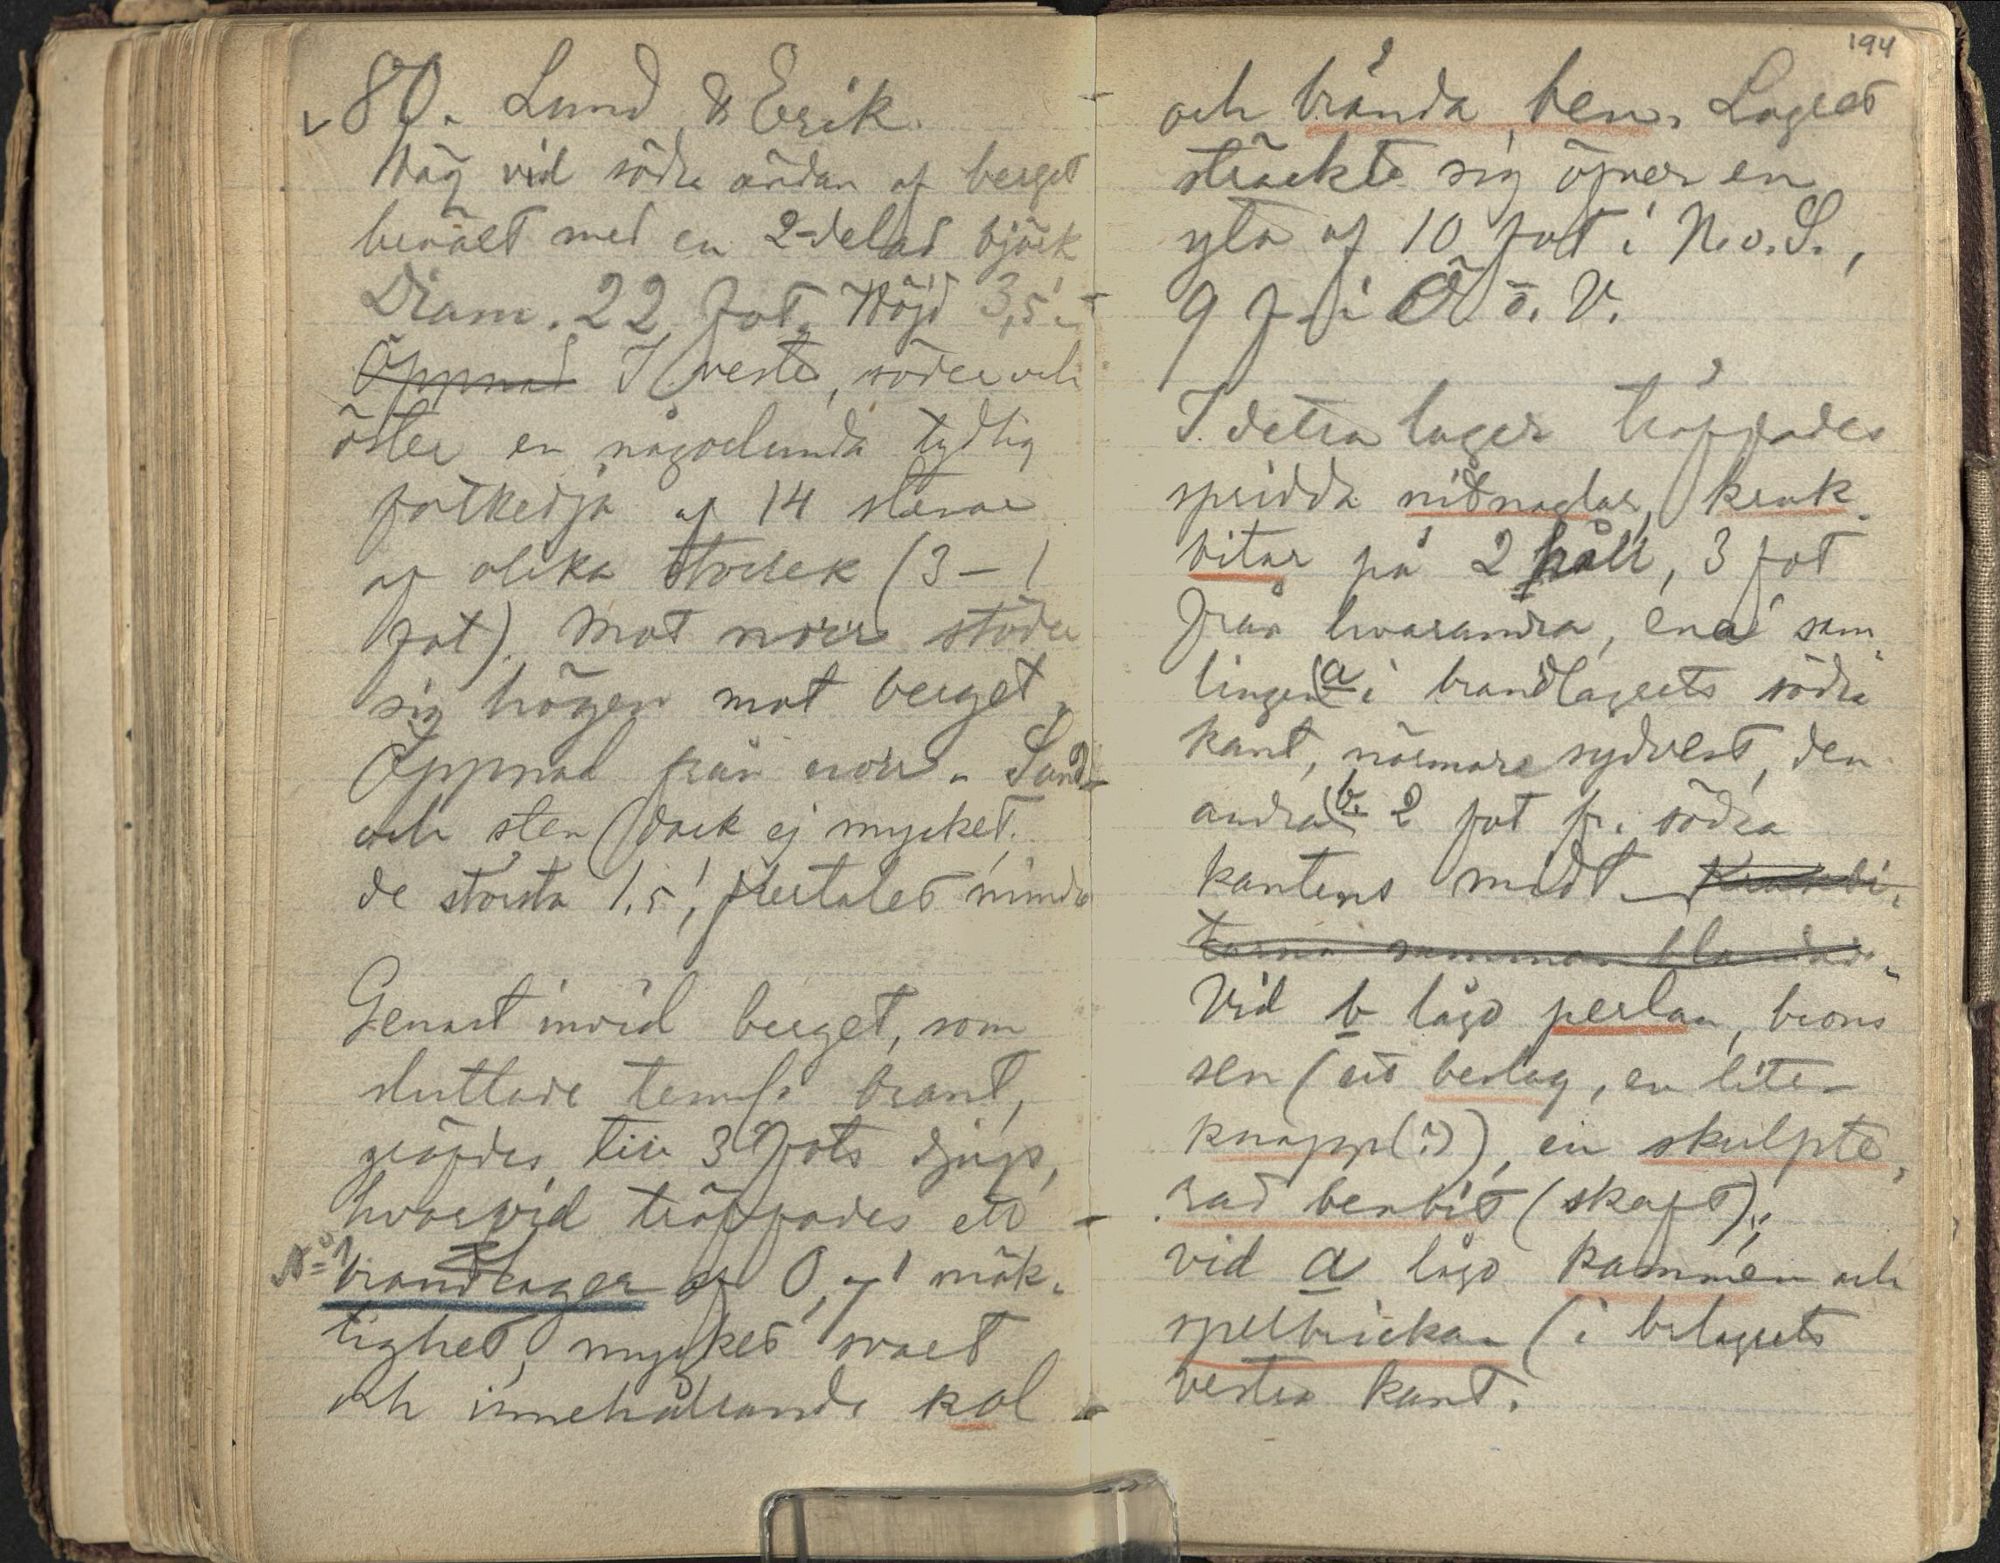 80. Lund & Erik.
Hög vid södra ändan af berget
beväxt med en 2-delad björk
Diam. 22 fot. Höjd 3,5'.
Öppnad I vester, söder och
öster en någorlunda tydlig
fotkedja af 14 stenar
af olika storlek (3–1
fot). Mot norr stöder
sig högen mot berget.
Öppnad från norr. Sand
och sten (dock ej mycket.
de största 1,5', flertalet mindre
Genast invid berget, som
sluttade teml. brant,
gräfdes till 3 fots djup,
hvarvid träffades ett
No 1
brandlager af 0,7' mäk-
tighet, mycket svart
och innehållande kol
194
och brända ben. Lagret
sträckte sig öfver en
yta af 10 fot i N. o. S.,
9 f. i Ö. o. V.
I detta lager träffades
spridda nitnaglar, kruk-
bitar på 2 håll, 3 fot
från hvarandra, ena sam-
lingen (a i brandlagrets södra
kant, närmare sydvest, den
andra (b. 2 fot fr. södra
kantens midt. Krukbi-
tarna sammanblandade.
Vid b lågo perlan, brons
sen (ett beslag, en liten
knapp(?)), en skulpte-
rad benbit (skaft);
vid a lågo kammen och
spelbrickan (i lagrets
vestra kant.